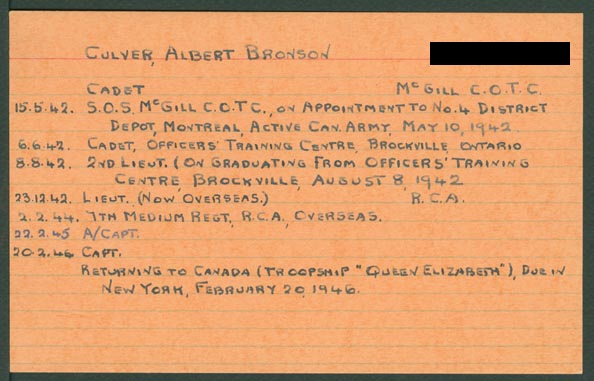 CULVER, ALBERT BRONSON
CADET McGILL C.O.T.C.
15.5.42. S.O.S. McGILL C.O.T.C., ON APPOINTMENT TO No.4 DISTRICT
DEPOT, MONTREAL, ACTIVE CAN. ARMY, MAY 10, 1942.
6.6.42. CADET, OFFICERS' TRAINING CENTRE, BROCKVILLE, ONTARIO
8.8.42. 2ND LIEUT. (ON GRADUATING FROM OFFICERS' TRAINING
CENTRE, BROCKVILLE, AUGUST 8, 1942
23.12.42. LIEUT. (NOW OVERSEAS.) R.C.A.
2.2.44. 7TH MEDIUM REGT, R.C.A., OVERSEAS.
22.2.45 A/CAPT.
20.2.46 CAPT.
RETURNING TO CANADA (TROOPSHIP "QUEEN ELIZABETH"), DUE IN
NEW YORK, FEBRUARY 20, 1946.